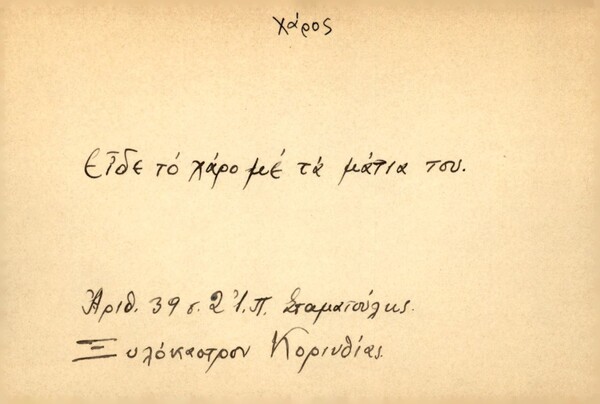 χάρος
Εἶδε τό χάρο μέ τά μάτια του.
Ἀριθ. 39 σ. 2 Ἰ. Π. Σταματούλης.
Ξυλόκαστρον Κορινθίας.